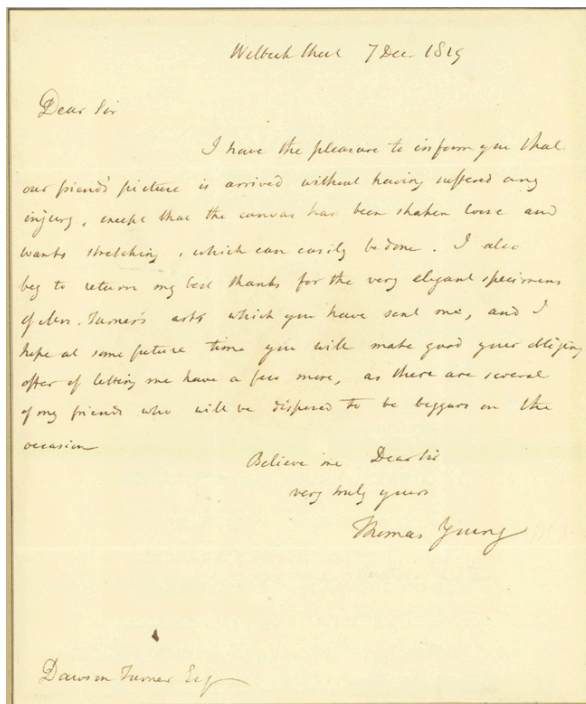 Welbeck Street 7 Dec. 1819
Dear Sir
I have the pleasure to inform you that
our friends' picture is arrived without having suffered any
injury, except that the canvas has been shaken loose and
wants stretching, which can easily be done. I also
beg to return my best thanks for the very elegant specimens
of Mrs. Turner's arts which you have sent me, and I
hope at some future time you will make good your obliging
offer of letting me have a few more, as there are several
of my friends who will be disposed to be beggars on the
occasion
Believe me Dear Sir
very truly yours
Thomas Young
Dawson Turner Esq